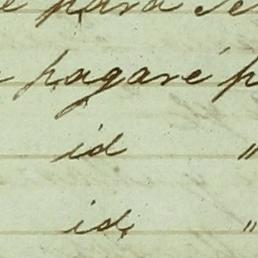 para se
pagaré p
id "
id "